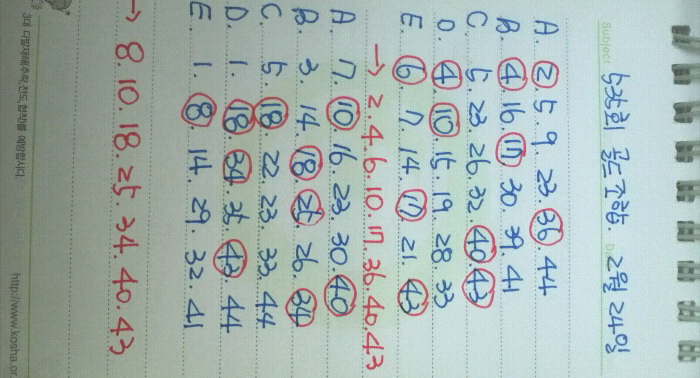 Subject
골드조합. 2월 24일
A. 2. 5. 9. 23. 36. 44
B. 4. 16. 17. 30. 39. 41
C. 5. 23. 26. 32. 40 43
D. 4. 10. 15. 19. 28. 33
E. 6. 7. 14. 17. 21. 43
→ 2.4.6.10.17.36.40.43
A. 7. 10. 16. 23. 30. 40
B. 3. 14. 18. 25. 26. 34
C. 5. 18. 22. 23. 33. 44
D. 1. 18. 34. 35. 43. 44
E. 1. 8. 14. 29. 32. 41
→ 8.10.18.25.34.40.43
3대 다발재해(추락,전도,협착)를 예방합시다. http://www.kosha.or